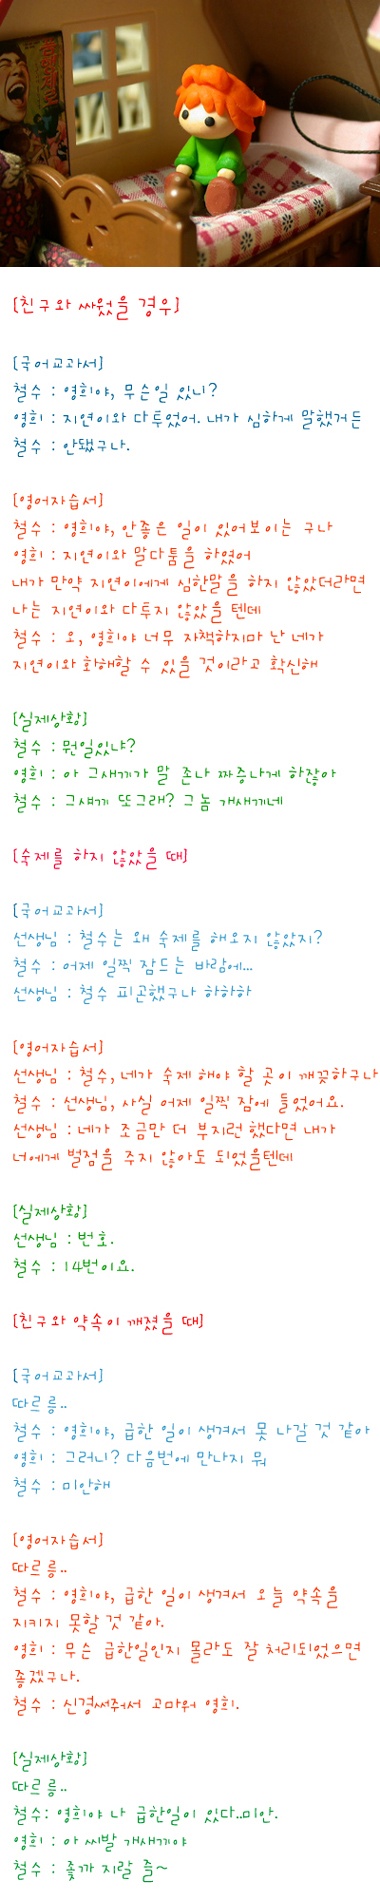 [친구와 싸웠을 경우]
[국어교과서]
철수 : 영희야, 무슨일 있니?
영희 : 지연이와 다투었어. 내가 심하게 말했거든
철수 : 안됐구나.
[영어자습서]
철수 : 영희야, 안좋은 일이 있어보이는 구나
영희 : 지연이와 말다툼을 하였어
내가 만약 지연이에게 심한말을 하지 않았더라면
나는 지연이와 다투지 않았을 텐데
철수 : 오, 영희야 너무 자책하지마 난 네가
지연이와 화해할 수 있을 것이라고 확신해
[실제상황]
철수 : 뭔일있냐?
영희 : 아 그새끼가 말 존나 짜증나게 하잖아
철수 : 그섀끼 또그래? 그놈 개새끼네
[숙제를 하지 않았을 때]
[국어교과서]
선생님 : 철수는 왜 숙제를 해오지 않았지?
철수 : 어제 일찍 잠드는 바람에...
선생님 : 철수 피곤했구나 하하하
[영어자습서]
선생님 : 철수, 네가 숙제 해야 할 곳이 깨끗하구나
철수 : 선생님, 사실 어제 일찍 잠에 들었어요.
선생님 : 네가 조금만 더 부지런 했다면 내가
너에게 벌점을 주지 않아도 되었을텐데
[실제상황]
선생님 : 번호.
철수 : 14번이요.
[친구와 약속이 깨졌을 때]
[국어교과서]
따르릉..
철수 : 영희야, 급한 일이 생겨서 못 나갈 것 같아
영희 : 그러니? 다음번에 만나지 뭐
철수 : 미안해
[영어자습서]
따르릉..
철수 : 영희야, 급한 일이 생겨서 오늘 약속을
지키지 못할 것 같아.
영희 : 무슨 급한일인지 몰라도 잘 처리되었으면
좋겠구나.
철수 : 신경써주어서 고마워 영희.
[실제상황]
따르릉..
철수: 영희야 나 급한일이 있다..미안.
영희 : 아 씨발 개새끼야
철수 : 좆까 지랄 즐~